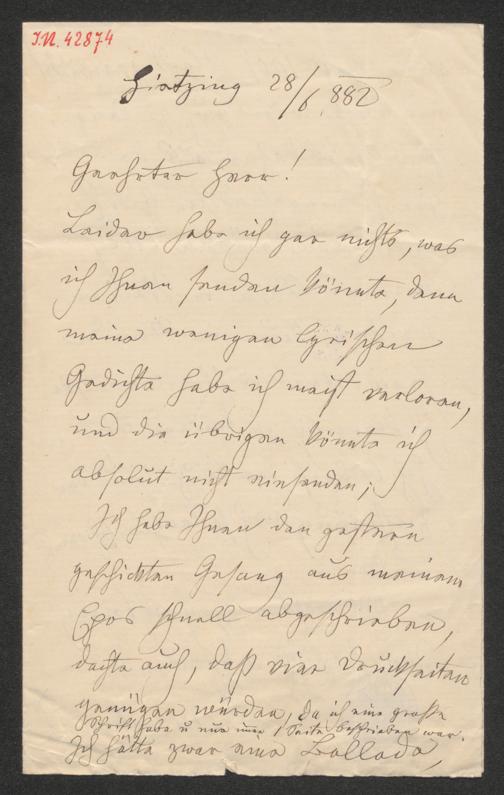 I.N. 42874
Hietzing 28/6 882
Geehrter Herr!
Leider habe ich gar nichts, was
ich Ihnen senden könnte, denn
meine wenigen lyrischen
Gedichte habe ich meist verloren,
und die übrigen könnte ich
absolut nicht einsenden;
Ich habe Ihnen den gestern
geschickten Gesang aus meinem
Epos schnell abgeschrieben,
dachte auch, daß vier Druckseiten
genügen würden, da ich eine große
Schrift habe u nur immer 1 Seite beschrieben war.
Ich hätte zwar eine Ballade,